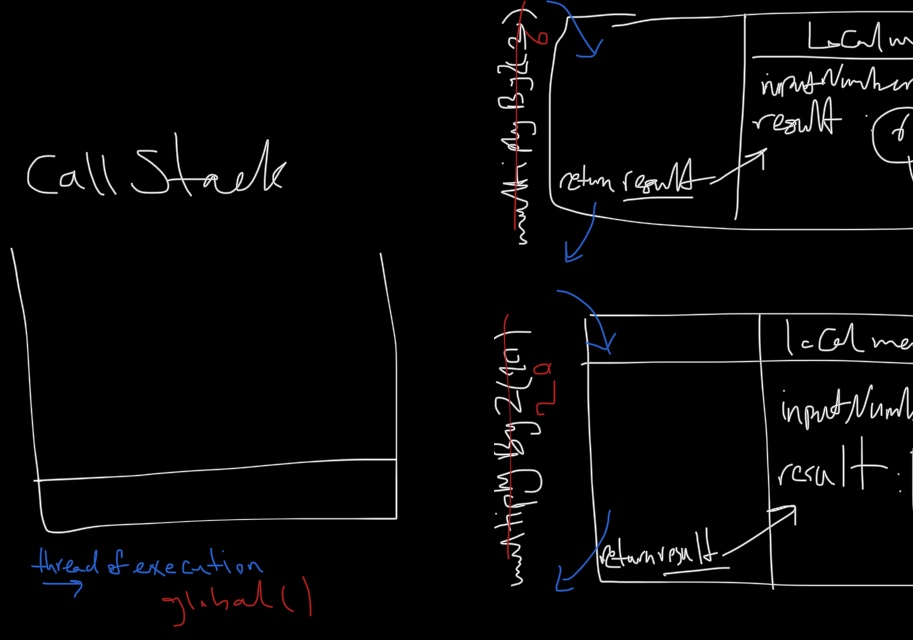 Call Stack
thread of execution
global()
multiplyBy2(3)
6
Local m
inputNumber
result :
6
return result
multiplyBy2(10)
20
local me
inputNumb
result :
return result